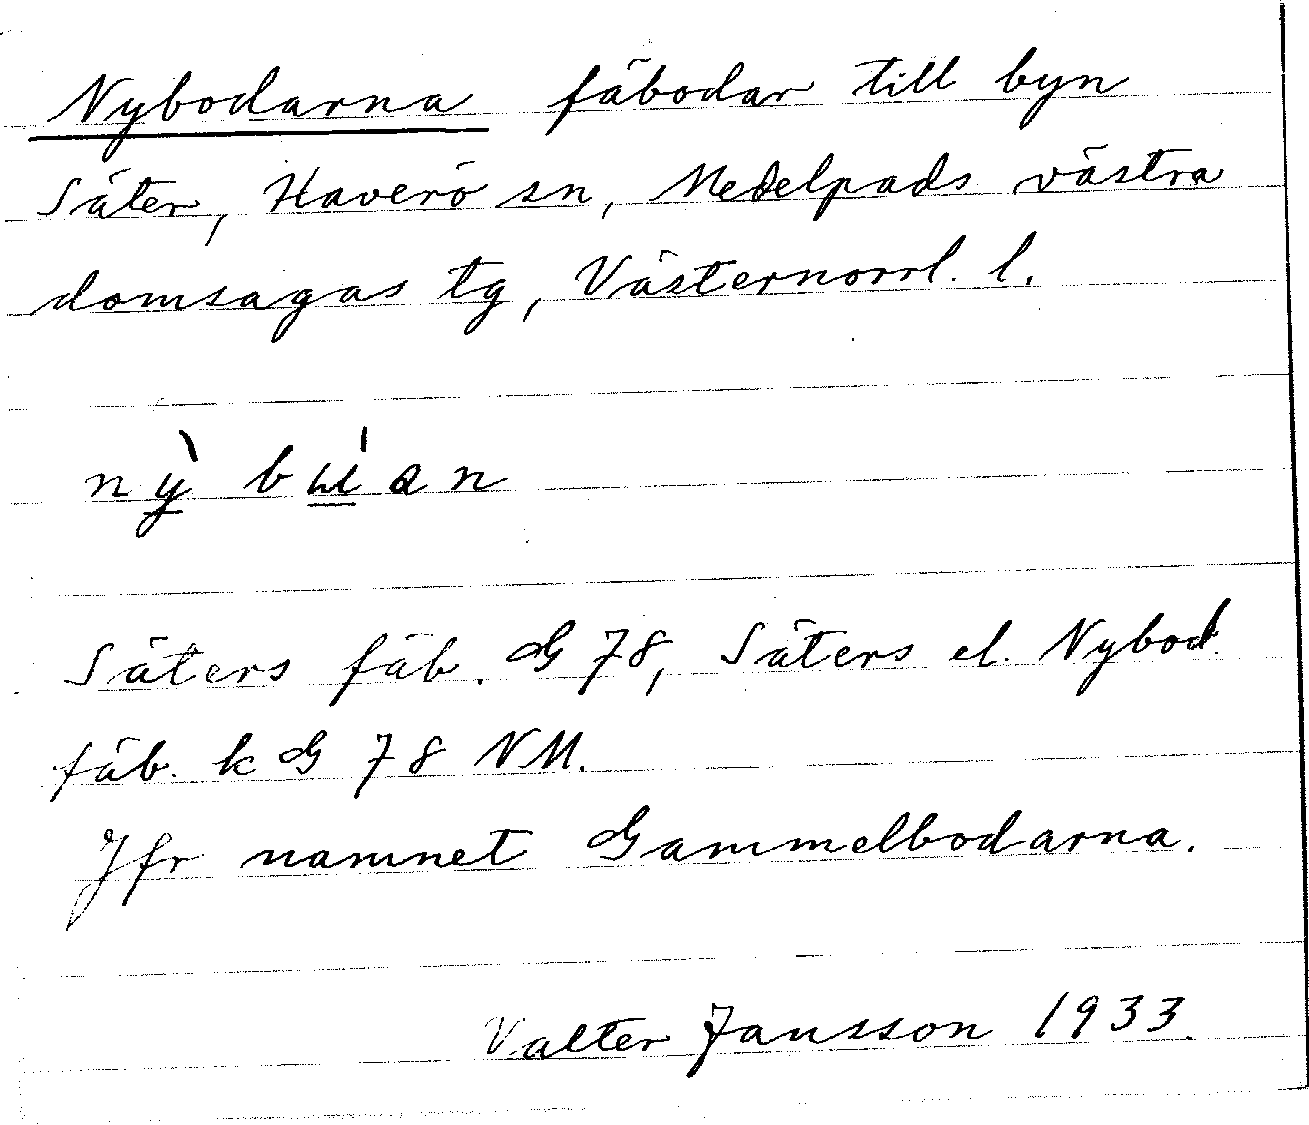 Nybodarna fäbodar till byn
Säter, Haverö sn, Medelpads västra
domsagas tg, Västernorrl. l.
nỳ bɯ́an
Säters fäb. G 78, Säters el. Nybod.
fäb. k G 78 NM.
Jfr namnet Gammelbodarna.
Valter Jansson 1933.